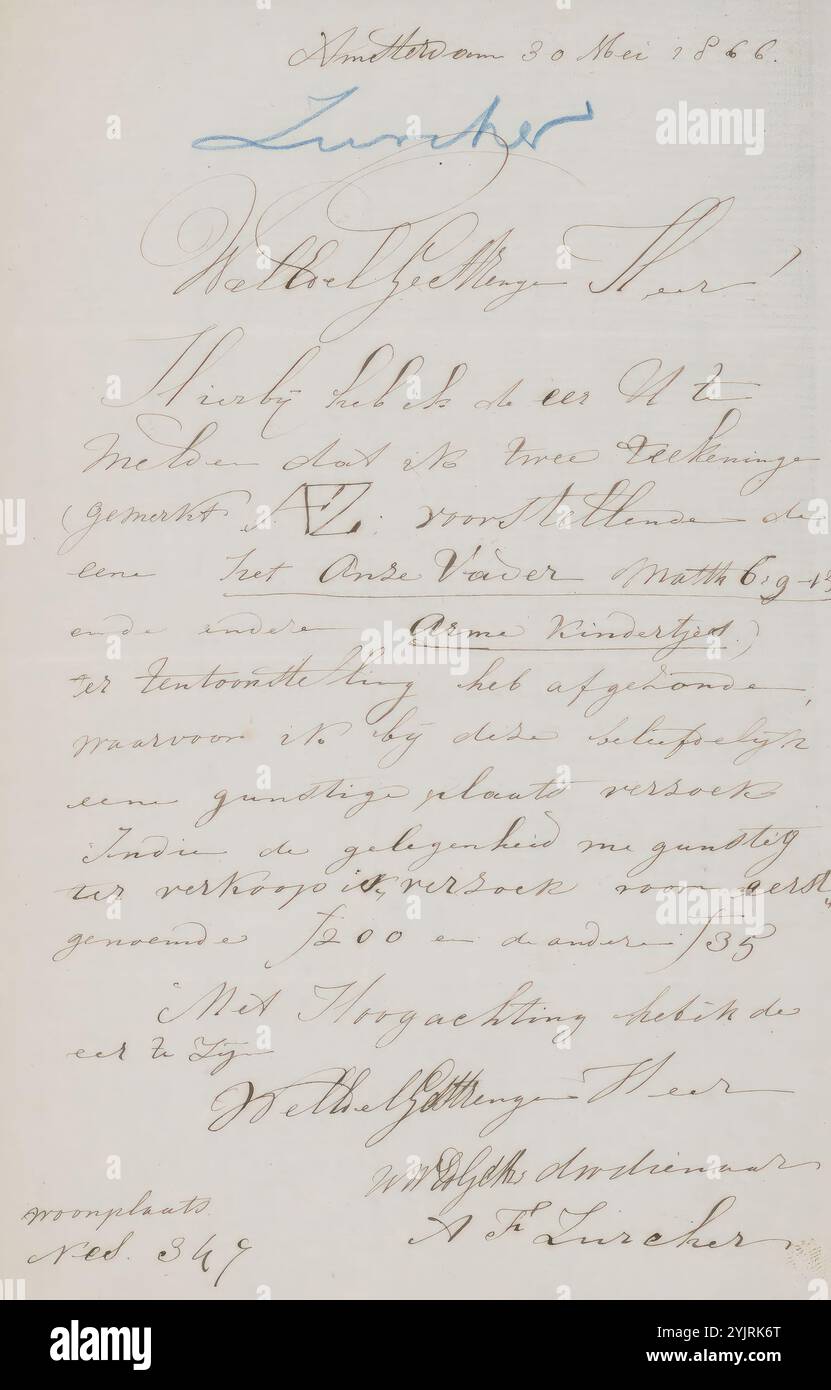 Amsterdam 30 Mei 1866.
Zurcher
WelEdel Gestrenge Heer!
Hierbij heb ik de eer U te
melden dat ik twee teekeninge
(gemerkt AFZ. voorstellende de
eene het Onze Vader Matth 6:9-13
en de andere Arme Kindertjes.)
ter tentoonstelling heb afgezonde,
waarvoor ik bij deze beleefdelijk
eene gunstige plaats verzoek
Indie de gelegenheid me gunstig
ter verkoop is, verzoek voor eerst"
genoemde ƒ200 en de andere ƒ35
Met Hoogachting heb ik de
eer te zijn
WelEdel Gestrenge Heer
UWEdGestr dwdienaar
A F Zurcher
woonplaats
Nes. 349
alamy
Image ID: 2YJRK6T
www.alamy.com